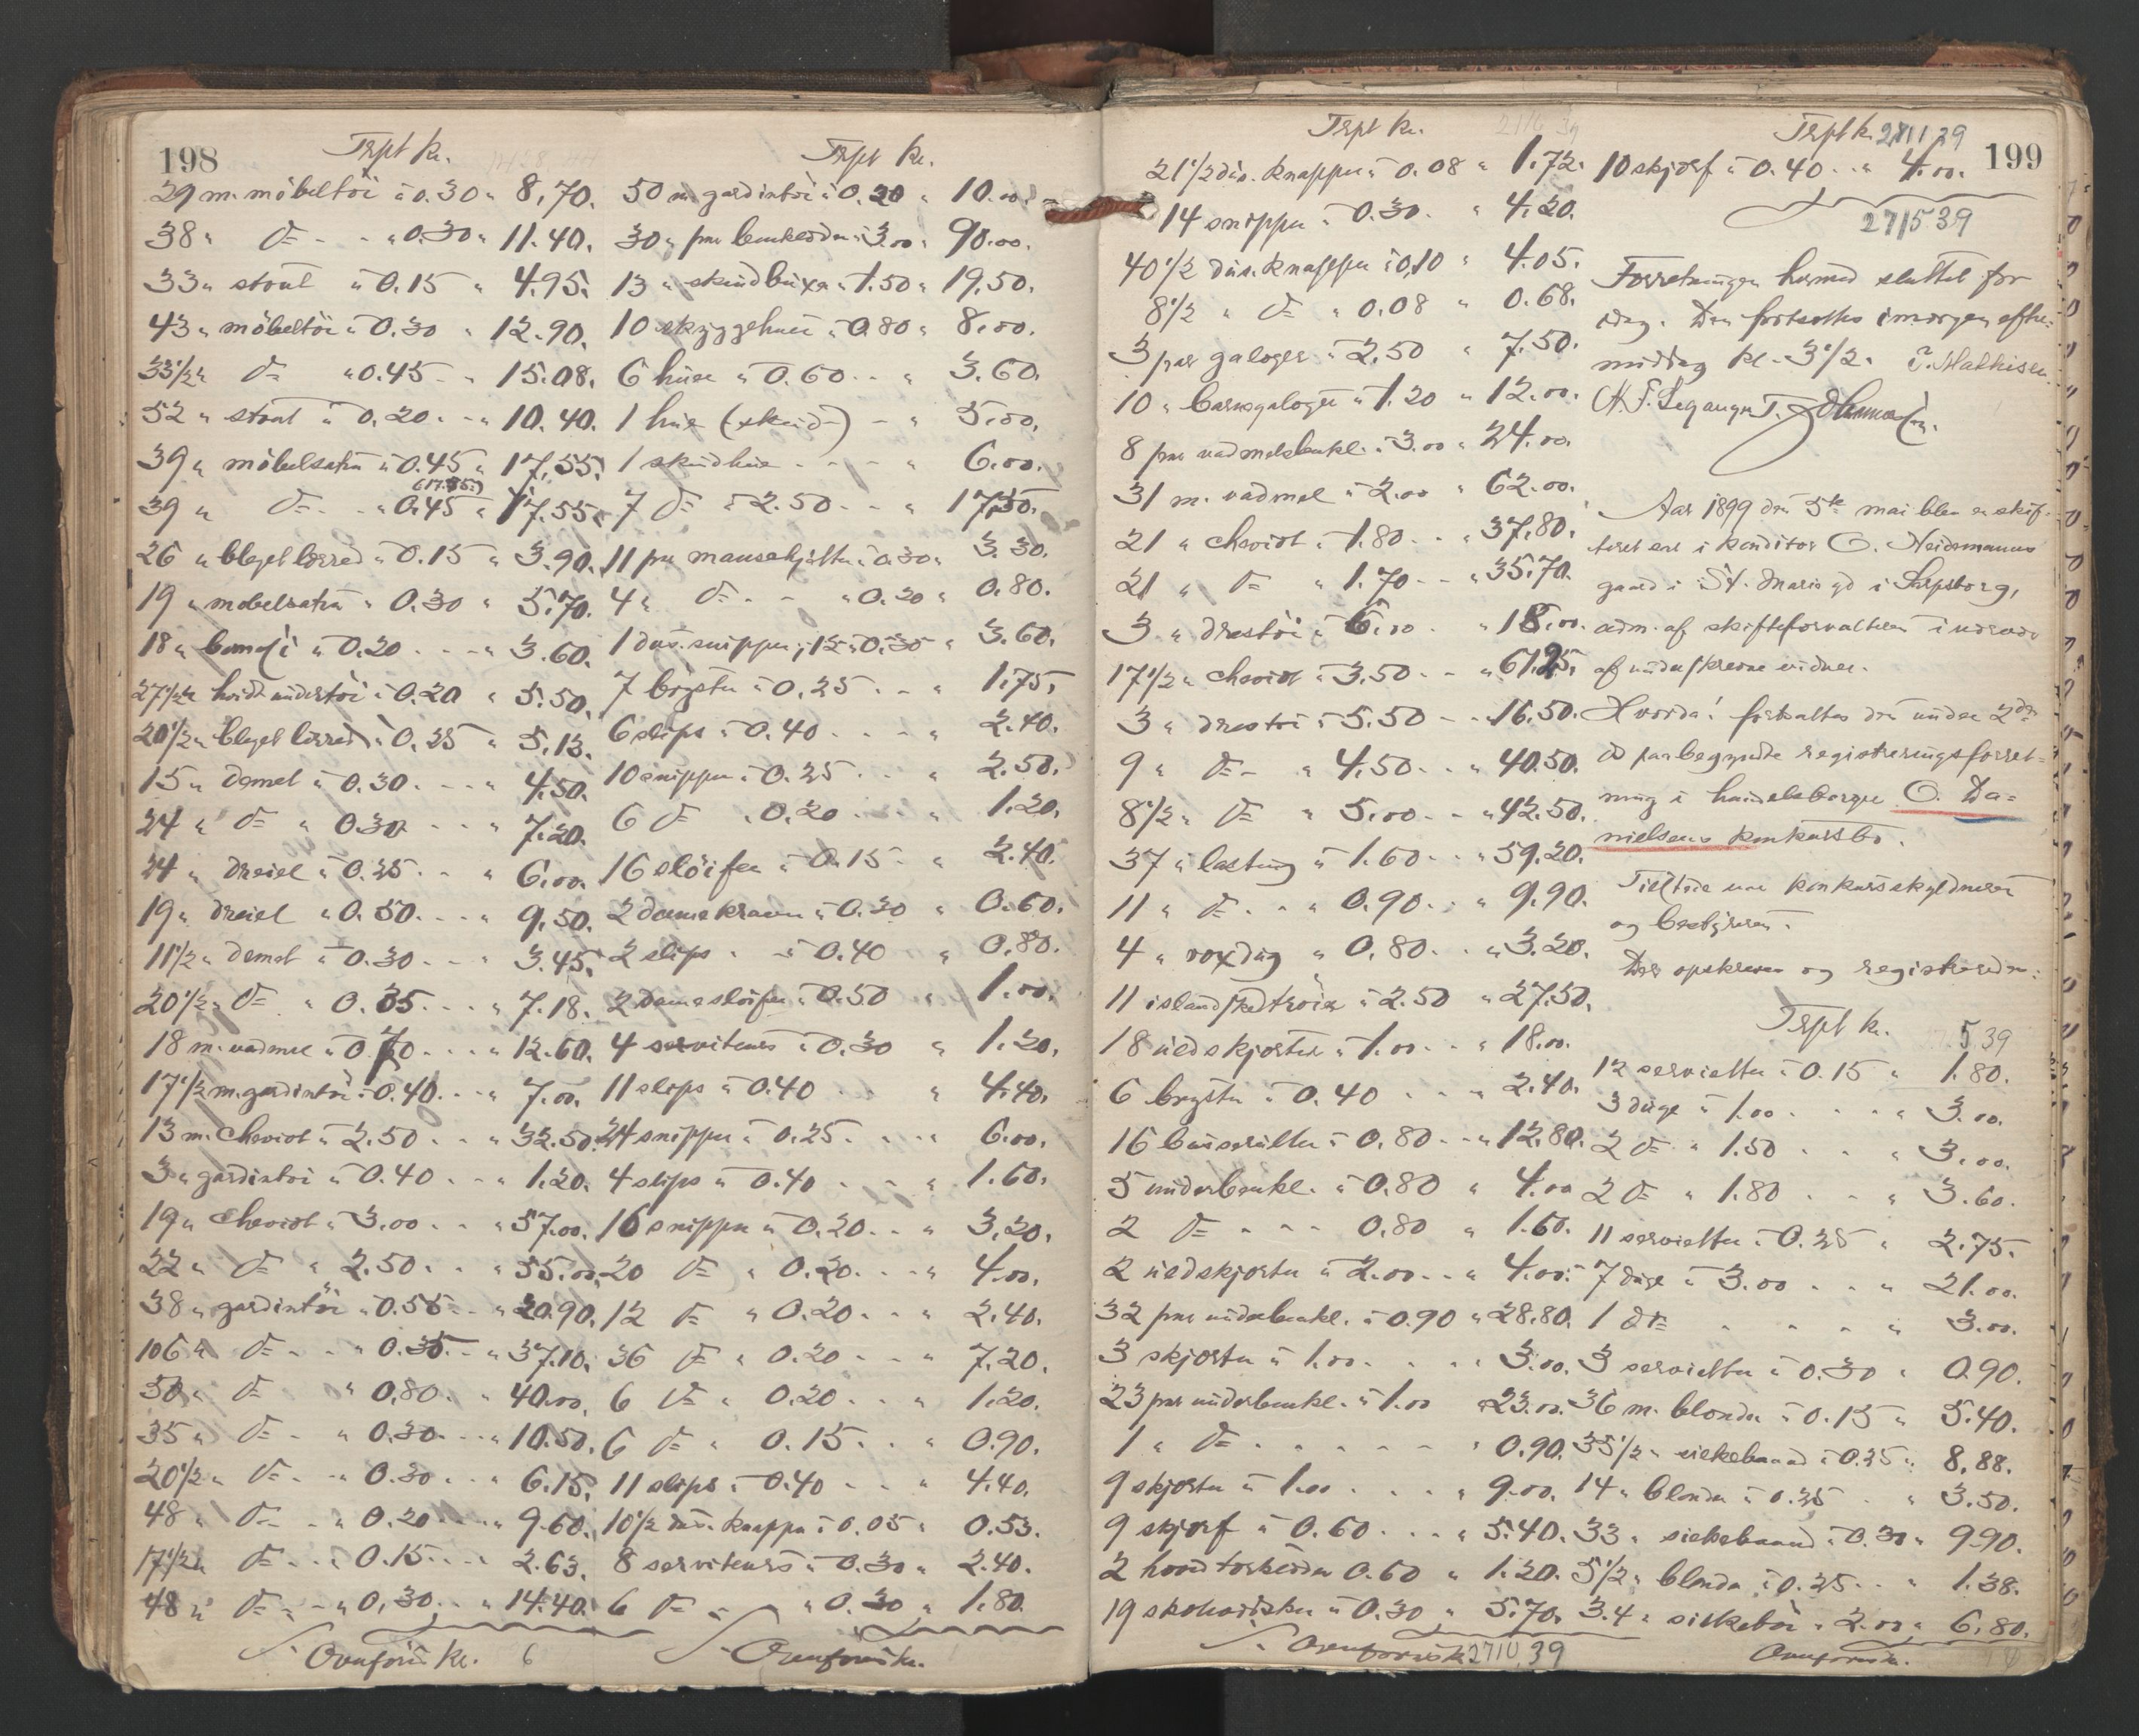 198
Trspt kr.
29 m. möbeltöi à 0.30 " 8.70.
38 " d= - - " 0.30 " 11.40.
33 " stout à 0.15 " 4.95.
43 " möbeltöi à 0.30 " 12.90.
33 1/2 " d= " 0.45 - " 15.08.
52 " stout à 0.20 - " 10.40.
39 " möbelsatin à 0.45 " 17.55.
39 " d= - " 0.45 " 17.55.
26 " bleget lærred à 0.15 " 3.90.
19 " mobelsatin " 0.30 " 5.70.
18 " bomesi à 0.20 - - " 3.60.
27 1/2 " hvidt undertöi à 0.20 " 5.50.
20 1/2 " bleget lærred à 0.25 " 5.13.
15 " demet à 0.30 - - " 4.50.
24 " d= " 0.30 - - " 7.20.
24 " dreiel à 0.25 - " 6.00.
19 " dreiel à 0.50 - - " 9.50.
11 1/2 " demet à 0.30 - - " 3.45.
20 1/2 " d= " 0.35 - - " 7.18.
18 m. vadmel à 0.70 - - " 12.60.
17 1/2 m. gardintöi à 0.40 - " 7.00.
13 m. cheviot à 2.50 - - " 32.50.
3 " gardintöi à 0.40 - - " 1.20.
19 " cheviot à 3.00 - - " 57.00.
22 " d= " 2.50 - - " 55.00.
38 " gardintöi à 0.55 - " 20.90.
106 " d= - - " 0.35 - " 37.10.
50 " d= " 0.80 - " 40.00.
35 " d= - " 0.30 - - " 10.50.
20 1/2 " d= - " 0.30 - - " 6.15.
48 " d= - " 0.20 - - " 9.60.
17 1/2 " d= - - " 0.15 - - " 2.63.
48 " d= - - " 0.30 - - " 14.40.
Overföres kr. 6
Trspt kr.
50 m gardintöi à 0.20 " 10.00.
30 " par benklæder à 3.00 " 90.00.
13 " skindbuxer à 1.50 " 19.50.
10 skyggehuer à 0.80 " 8.00.
6 huer à 0.60 - - " 3.60.
1 hue (skind-) - " 5.00.
1 skindhue - - - " 6.00.
7 d= à 2.50 - - " 17.50.
11 par manschjetter à 0.30 " 3.30.
4 " d= - - " 0.20 " 0.80.
1 dus. snipper, 12 à 0.30 " 3.60.
7 bryster à 0.25 - - " 1.75.
6 slips à 0.40 - - - " 2.40.
10 snipper à 0.25 - - " 2.50.
6 d= " 0.20 - - " 1.20.
16 slöifer à 0.15 - " 2.40.
2 damekraver à 0.30 " 0.60.
2 slips - à 0.40 " 0.80.
2 dameslöifer à 0.50 " 1.00.
4 serviteurs à 0.30 " 1.20.
11 slips à 0.40 - - " 4.40.
24 snipper à 0.25 - - " 6.00.
4 slips à 0.40 - - " 1.60.
16 snipper à 0.20 - - " 3.20.
20 d= " 0.20 - - " 4.00.
12 d= " 0.20 - - " 2.40.
36 d= " 0.20 - - " 7.20.
6 d= " 0.20 - - " 1.20.
6 d= " 0.15 - - " 0.90.
11 slips à 0.40 - - " 4.40.
10 1/2 dus. knapper à 0.05 " 0.53.
8 serviteurs à 0.30 " 2.40.
6 d= - " 0.30 " 1.80.
Overföres kr.
199
Trspt kr. 2116 39
21 1/2 dus. knapper à 0.08 " 1.72.
14 snipper à 0.30 - " 4.20.
40 1/2 dus. knapper à 0.10 " 4.05.
8 1/2 " d= " 0.08 " 0.68.
3 par galoger à 2.50 " 7.50.
10 " barnegaloger à 1.20 " 12.00.
8 par vadmelsbenkl. à 3.00 " 24.00.
31 m. vadmel à 2.00 " 62.00.
21 " cheviot à 1.80 - - " 37.80.
21 " d= " 1.70 - - " 35.70.
3 " drestöi à 6.00 - " 18.00.
17 1/2 " cheviot à 3.50 - - " 61.25.
3 " drestöi à 5.50 - - " 16.50.
9 " d= - " 4.50 - - " 40.50.
8 1/2 " d= " 5.00 - - " 42.50.
37 " lasting à 1.60 - - " 59.20.
11 " d= - - " 0.90 - - " 9.90.
4 " voxdug " 0.80 - - " 3.20.
11 islandsketröier à 2.50 " 27.50.
18 uldskjorter à 1.00 - - " 18.00.
6 bryster à 0.40 - - - " 2.40.
16 busseruller à 0.80 - - " 12.80.
5 underbenkl. à 0.80 " 4.00
2 d= - - - 0.80 " 1.60.
2 uldskjorter à 2.00 - - " 4.00.
32 par underbenkl. à 0.90 " 28.80.
3 skjorter à 1.00 - - - " 3.00.
23 par underbenkl. à 1.00 " 23.00.
1 " d= - - - - - " 0.90.
9 skjorter à 1.00 - - - " 9.00.
9 skjorf à 0.60 - - - " 5.40.
2 hovedtörklæder 0.60 " 1.20.
19 " à 0.30 " 5.70.
Overföres kr. 2710.39
Trspt kr. 2711 39
10 skjorf à 0.40 - - " 4.00.
2715 39
Forretningen hermed sluttet for
idag. Den fortsættes imorgen efter-
middag kl. 3 1/2. T. Mathisen.
Aar 1899 den 5te mai blev en skif-
teret sat i konditor C. Heidemanns
gaard i St. Marie gd i Sarpsborg,
adm. af skifteforvalteren i nærvær
af underskrevne vidner.
Hvorda: fortsattes den under 2den
ds paabegyndte registreringsforret-
ning i handelsborger O. Da-
nielsens konkursbo.
Tilstede var konkursskyldneren
og bestyreren.
Der opskreves og registreredes:
Trspt kr. 5 39
12 servietter à 0.15 " 1.80.
3 duge à 1.00 - - - " 3.00.
2 d= " 1.50 - - " 3.00.
2 d= " 1.80 - - " 3.60.
11 servietter à 0.25 " 2.75.
7 duge à 3.00 - - " 21.00.
1 d= - - - - " 3.00.
3 servietter à 0.30 " 0.90.
36 m. blonder à 0.15 " 5.40.
35 1/2 " silkebaand à 0.25 " 8.88.
14 " blonder à 0.25 - " 3.50.
33 " silkebaand à 0.30 " 9.90.
5 1/2 " blonder à 0.25 - - " 1.38.
3.4 " silketöi à 2.00 " 6.80.
Overföres kr.